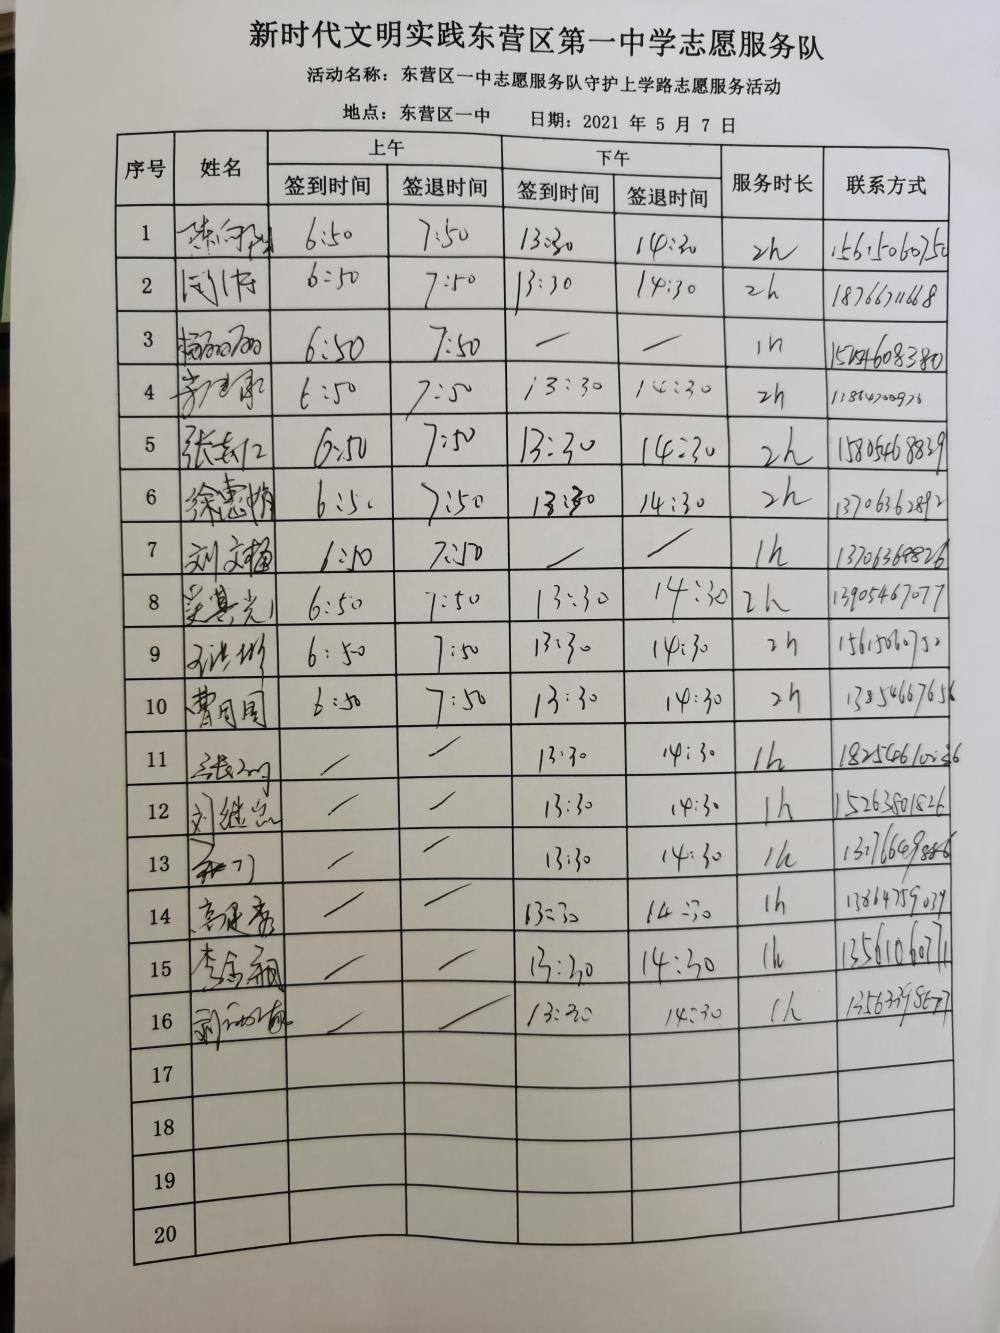 新时代文明实践东营区第一中学志愿服务队
活动名称：东营区一中志愿服务队守护上学路志愿服务活动
地点：东营区一中 日期：2021 年 5 月 7 日
序号 姓名 上午 下午 服务时长 联系方式
签到时间 签退时间 签到时间 签退时间
1 6:50 7:50 13:30 14:30 2h
2 6:50 7:50 13:30 14:30 2h 18766711668
3 杨丽丽 6:50 7:50 — — 1h
4 6:50 7:50 13:30 14:30 2h
5 张志仁 6:50 7:50 13:30 14:30 2h 15805468839
6 徐惠娟 6:50 7:50 13:30 14:30 2h 13706362892
7 刘文梅 6:50 7:50 — — 1h 13706368826
8 吴其光 6:50 7:50 13:30 14:30 2h 13905467077
9 6:50 7:50 13:30 14:30 2h
10 曹园园 6:50 7:50 13:30 14:30 2h 13854667656
11 — — 13:30 14:30 1h
12 — — 13:30 14:30 1h 15263801826
13 — — 13:30 14:30 1h
14 — — 13:30 14:30 1h
15 — — 13:30 14:30 1h 13561060771
16 — — 13:30 14:30 1h
17
18
19
20